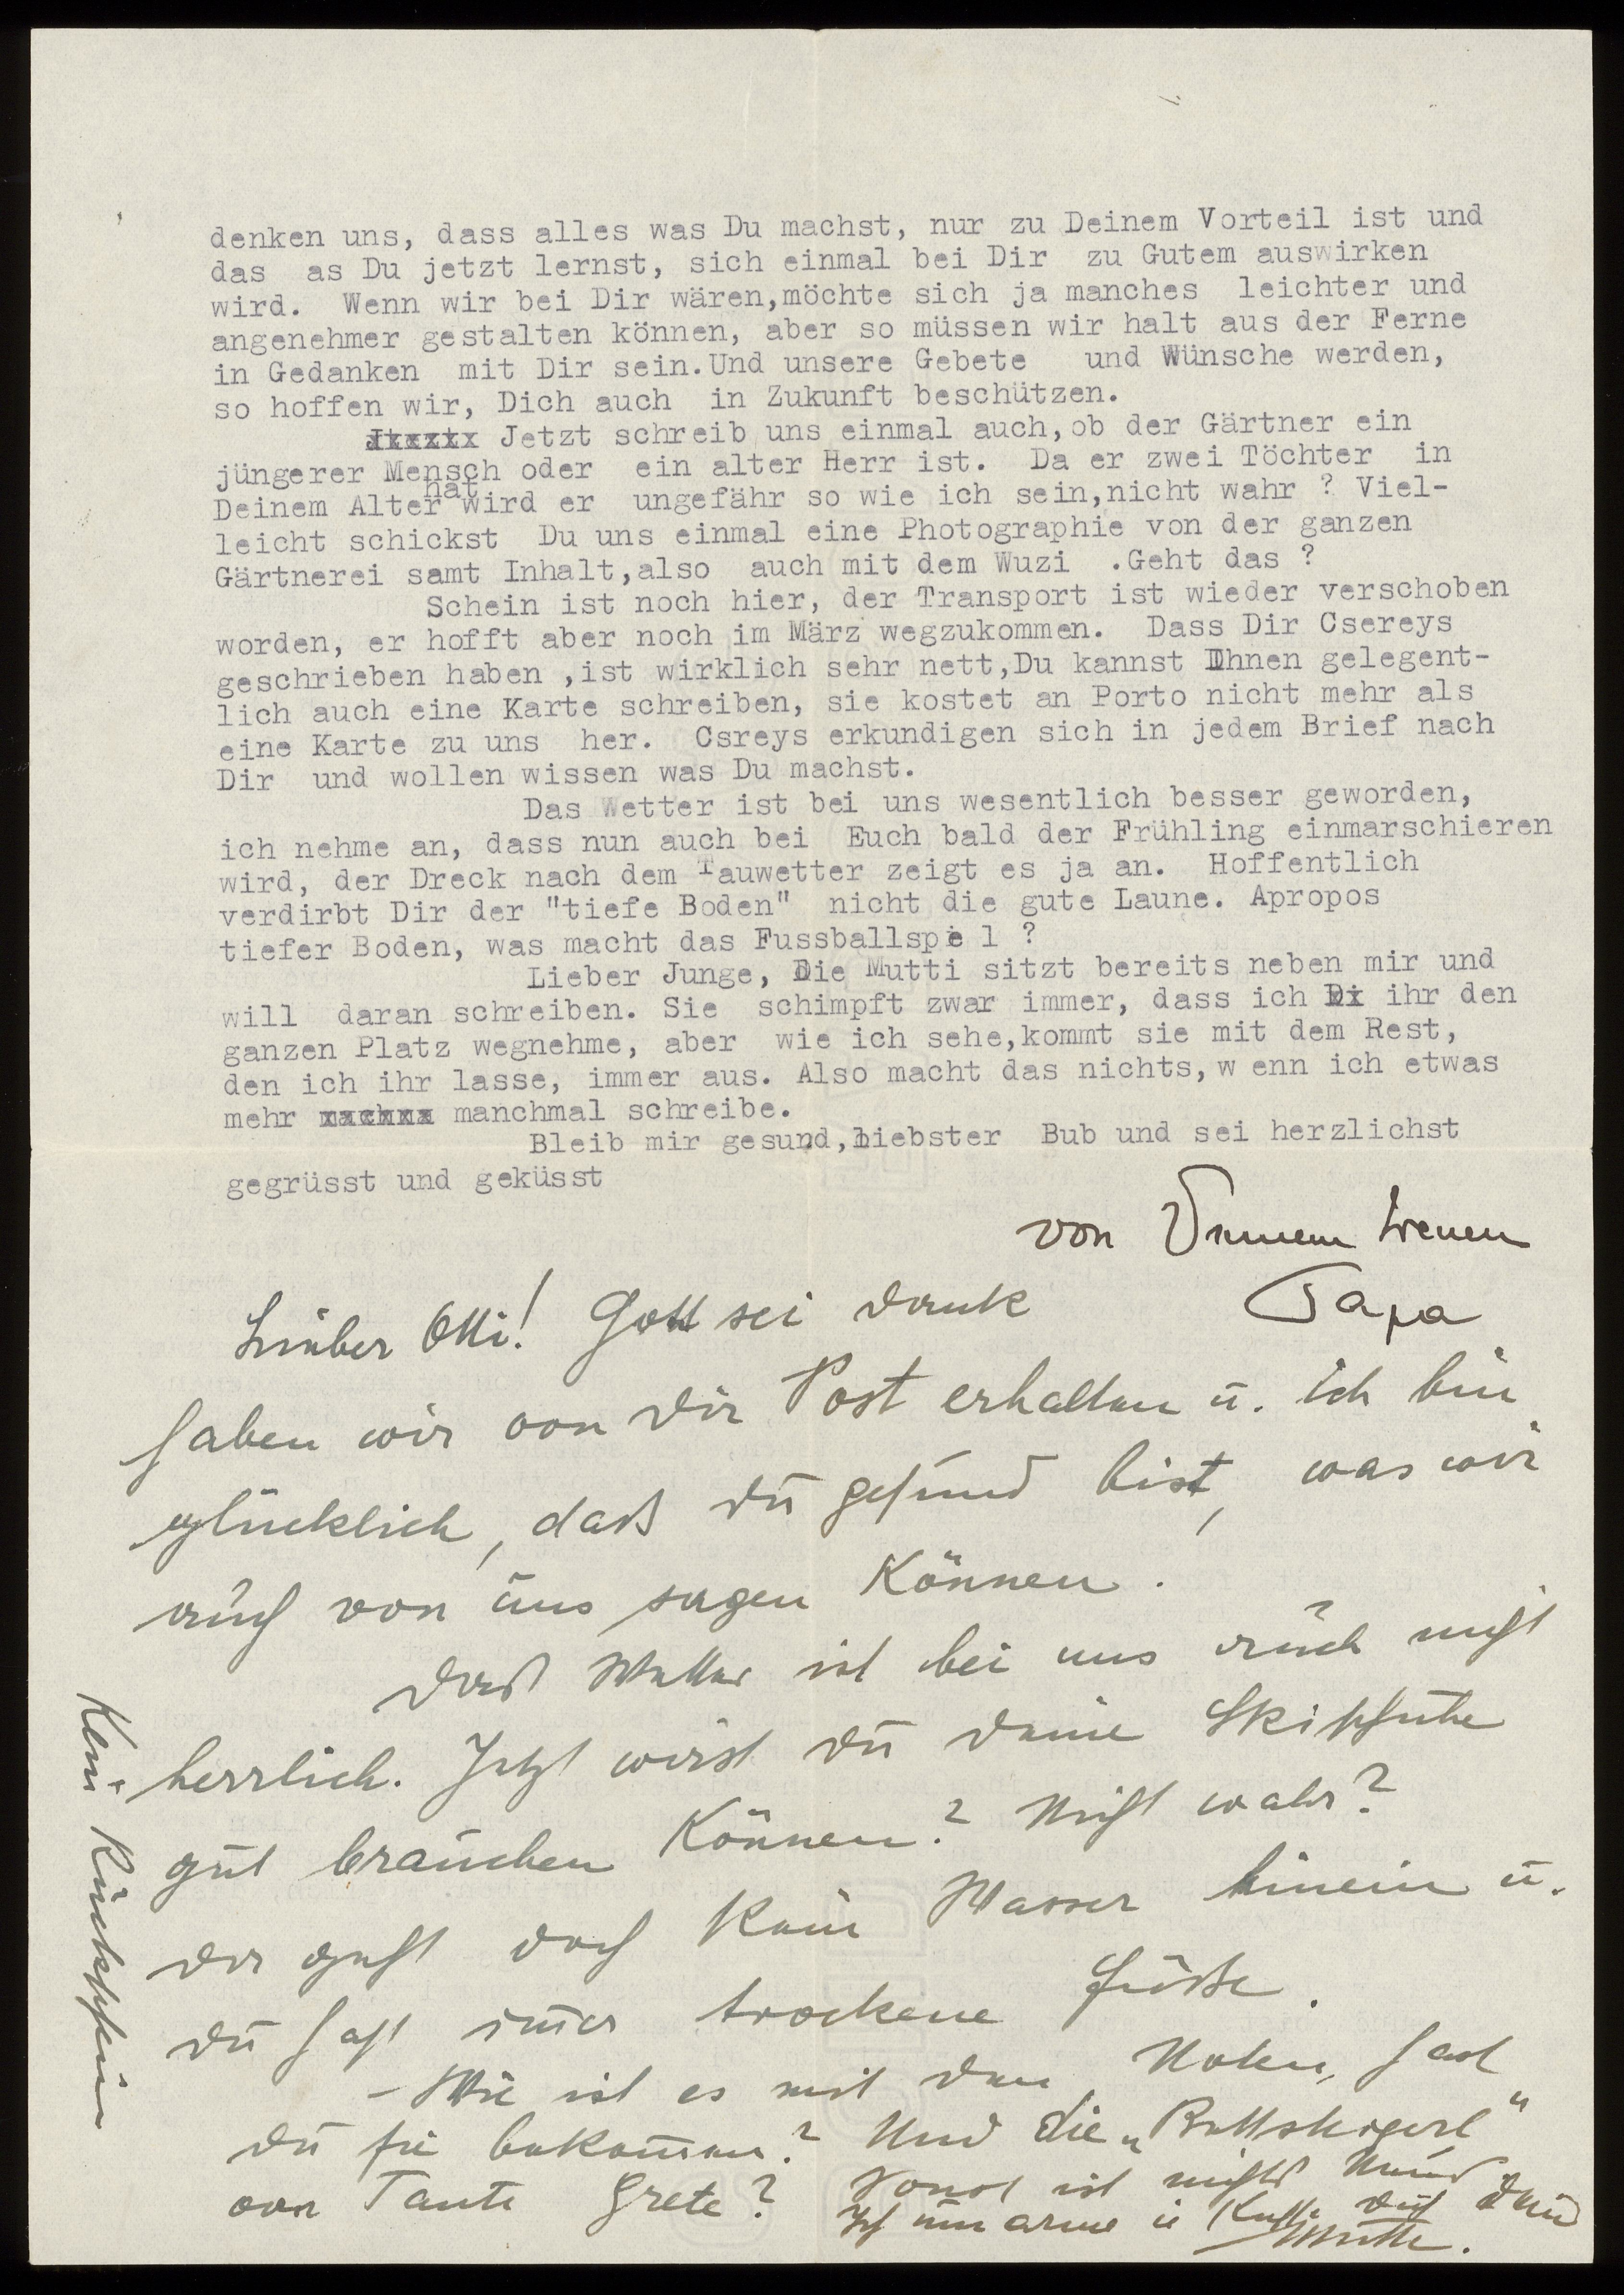 denken uns, dass alles was Du machst, nur zu Deinem Vorteil ist und
das as Du jetzt lernst, sich einmal bei Dir zu Gutem auswirken
wird. Wenn wir bei Dir wären,möchte sich ja manches leichter und
angenehmer gestalten können, aber so müssen wir halt aus der Ferne
in Gedanken mit Dir sein.Und unsere Gebete und Wünsche werden,
so hoffen wir, Dich auch in Zukunft beschützen.
Jetzt schreib uns einmal auch,ob der Gärtner ein
jüngerer Mensch oder ein alter Herr ist. Da er zwei Töchter in
Deinem Alter hat wird er ungefähr so wie ich sein,nicht wahr ? Viel-
leicht schickst Du uns einmal eine Photographie von der ganzen
Gärtnerei samt Inhalt,also auch mit dem Wuzi .Geht das ?
Schein ist noch hier, der Transport ist wieder verschoben
worden, er hofft aber noch im März wegzukommen. Dass Dir Csereys
geschrieben haben ,ist wirklich sehr nett,Du kannst Ihnen gelegent-
lich auch eine Karte schreiben, sie kostet an Porto nicht mehr als
eine Karte zu uns her. Csreys erkundigen sich in jedem Brief nach
Dir und wollen wissen was Du machst.
Das Wetter ist bei uns wesentlich besser geworden,
ich nehme an, dass nun auch bei Euch bald der Frühling einmarschieren
wird, der Dreck nach dem Tauwetter zeigt es ja an. Hoffentlich
verdirbt Dir der "tiefe Boden" nicht die gute Laune. Apropos
tiefer Boden, was macht das Fussballspie l ?
Lieber Junge, Die Mutti sitzt bereits neben mir und
will daran schreiben. Sie schimpft zwar immer, dass ich ihr den
ganzen Platz wegnehme, aber wie ich sehe,kommt sie mit dem Rest,
den ich ihr lasse, immer aus. Also macht das nichts,w enn ich etwas
mehr manchmal schreibe.
Bleib mir gesund,liebster Bub und sei herzlichst
gegrüsst und geküsst
von Deinem treuen
Papa
Lieber Otti! Gott sei dank
haben wir von dir Post erhalten u. ich bin
glücklich, daß du gesund bist, was wir
auch von uns sagen können.
Das Wetter ist bei uns auch nicht
herrlich. Jetzt wirst du deine Skischuhe
gut brauchen können? Nicht wahr?
da geht doch kein Wasser hinein u.
du hast immer trockene Füße.
- Wie ist es mit den Noten, hast
du sie bekommen? Und die
von Tante Grete? Sonst ist nichts Neues
Ich umarme u. Küsse dich Deine
Mutti.
Kein Rückschein